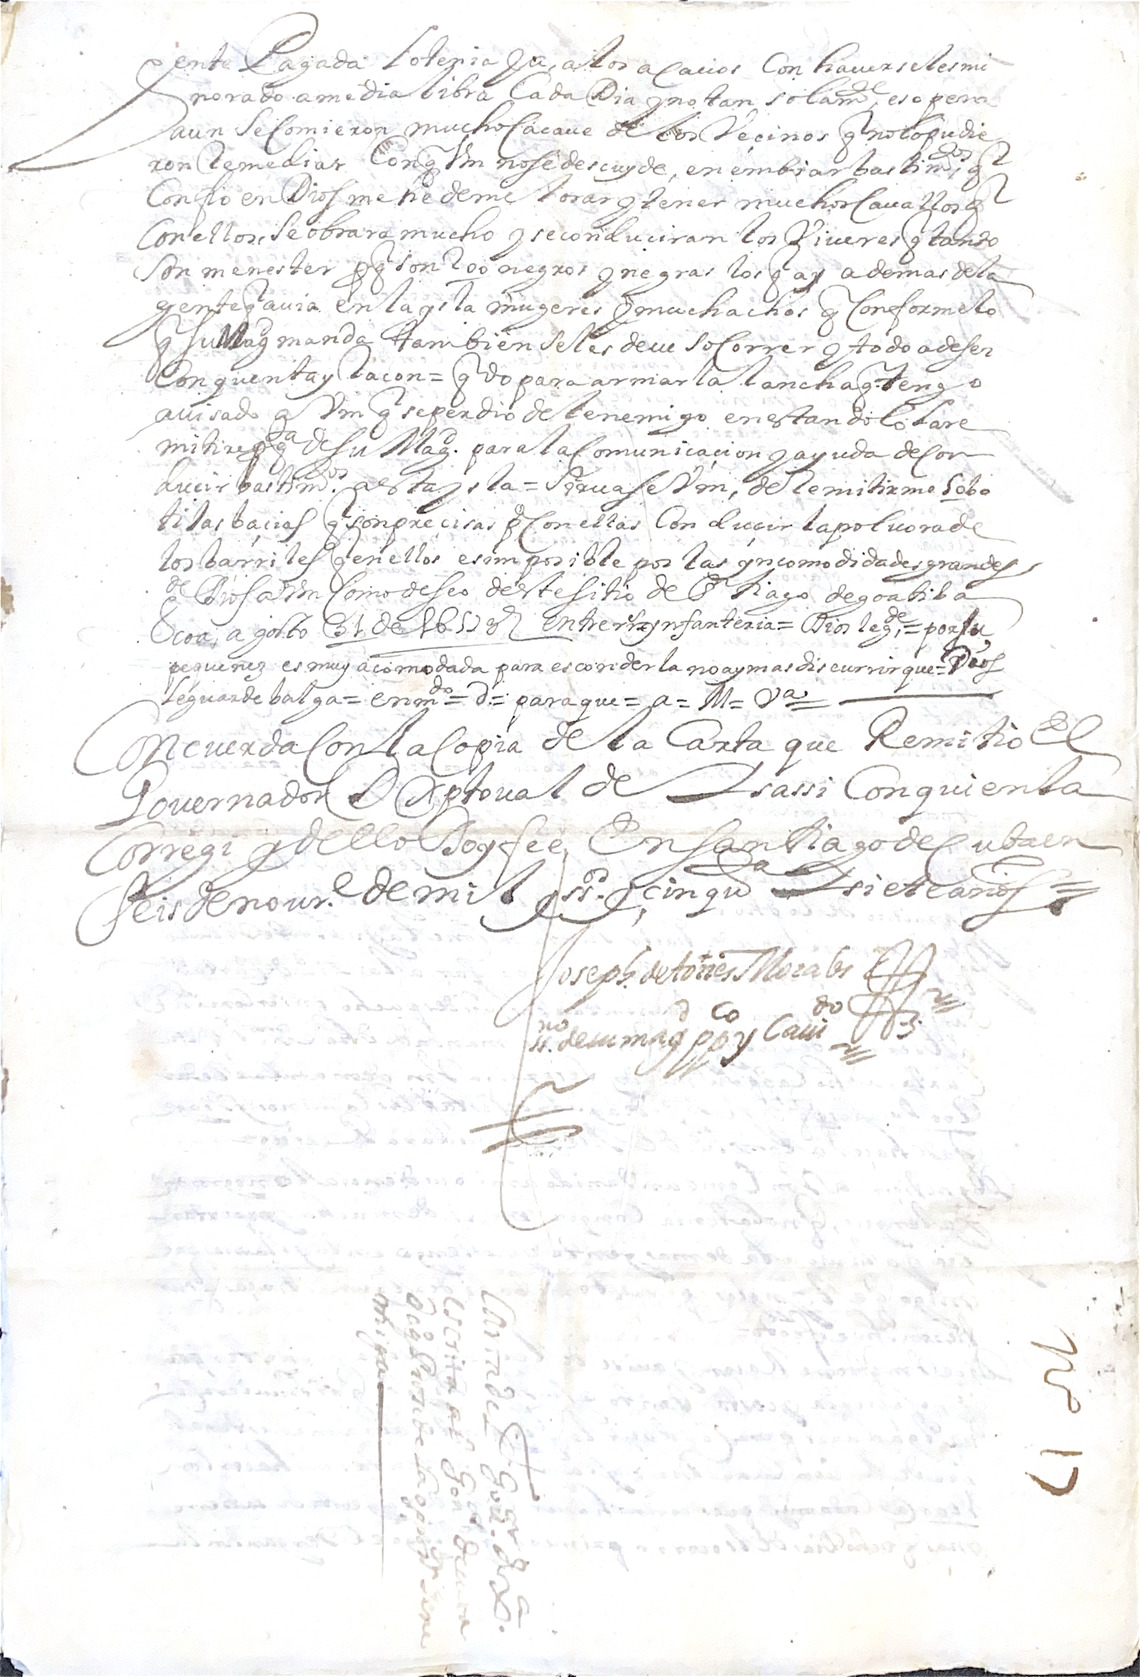 gente Pagada lo tenia ya, a los acavos Con haverseles mi
norado a media libra Cada Dia y no tan solamte eso pero
aun se Comieron mucho Cacave de los Vecinos q no lo pudie
ron Remediar Conq Vm no se descuyde, en embiar bastimos, q
Confio en Dios me he de mejorar y tener muchos Cavallos q
Con ellos, se obrara mucho y se conduciran los Viveres q tanto
son menester pq son 400 negros y negras los q ay ademas de la
gente q avia en la ysla mugeres y muchachos q Conforme lo
q su Magd manda tambien se les deve socorrer y todo a de ser
Con quenta y Racon = qdo para armar la lancha q tengo
avisado a Vm q se perdio del enemigo en estando lo la re
mitire pa de su Magd. para la Comunicacion y ayuda de Con
ducir bastimos a esta ysla = Sirvase Vm, de Remitirme Los bo
tijas bacias q son precisas pa Con ellas Conducir la polvora de
los barriles q en ellos es imposible por las yncomodidades grandes
gde Dios a Vm Como deseo deste sitio de S Tiago de goatiba
coa, agosto 31 de 1657 as entre Rs ynfanteria = Dios legde = por su
pequenez es muy acomodada para esconderla no ay mas discurrir que = Dios
le guarde balga = enmdo = d = para que = a = M = Va
Concuerda Con la Copia de la Carta que Remitio El
Governador D Xptoval de Isassi Con quien la
Corregi y dello Doy fee, En Santiago de Cuba en
seis de novre de mil y sso y cinqta y siete años =
Joseph. de torres Morales
ssno de su magd ppco y Cavido
Carta del Govor. de Xa.
escrita al Govr de Cuba
Don Pedro de Bayona Ville
nueba
No 17